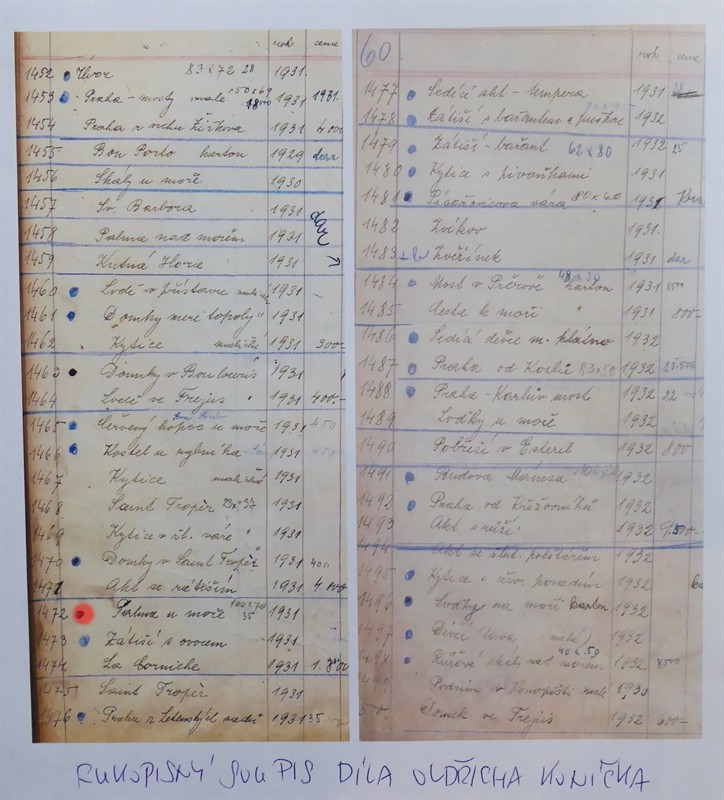 rok cena
1452 Úvoz 83x72 28 1931.
1453 Praha - mosty malé 50x69 1931 1931.
1454 Praha z vrchu Žižkova 1931 4.000
1455 Bon Porto karton 1929 dar
1456 Skály u moře 1930
1457 Sv. Barbora 1931
dar
1458 Palma nad mořem 1931
1459 Kutná Hora 1931
1460 Lodě v přístavu 1931 -
1461 Domky mezi topoly " 1931
1462 Kytice maličké 1931 300-
1463 Domky v Boulouris 1931
1464 Lodě ve Frejus " 1931 400.-
1465 Červený kopec u moře 1931 450
1466 Kostel u rybníka 1931 450
1467 Kytice 1931
1468 Saint Tropèz 1931
1469 Kytice v váze " 1931
1470 Domky v Saint Tropèz 1931 400
1471 Akt se zátiším 1931 4.000
1472 Palma u moře 100x70 35 1931
1473 Zátiší s ovocem 1931
1474 La Corniche 1931
1475 Saint Tropèz 1931
1476 Praha z Letenských sadů 1931 35 -
60 rok cena
1477 Sedící akt - tempera 1931
1478 Zátiší s bažantem 1932
1479 Zátiší - bažant 62x80 1932 25
1480 Kytice s pivoňkami 1931
1481 váza 80x60 1931
1482 Zvíkov 1931.
1483 Zvěřinek 1931 dar
1484 Most v Přerově 48x50 karton 1931
1485 Cesta k moři " 1931 800-
1486 Sedící děvče m. plátno 1932
1487 Praha od Karlů 83x50 1932
1488 Praha - Karlův most 1932 22 -
1489 Loďky u moře 1932
1490 Pobřeží v Esterel 1932 800
1491 Budova Mánesa 1932
1492 Praha od Křižovníků 1932
1493 Akt s růží 1932 9.500-
1494 Akt se polštářem 1932
1495 Kytice s pozadím 1932
1496 Loďky na moři karton 1932
1497 Děvče malé 1932
1498 Růžové skály nad mořem 40x50 1932
Podzim v Konopišti malé 1930
Domek ve Frejus 1932 600-
RUKOPISNÝ SOUPIS DÍLA OLDŘICHA KONÍČKA